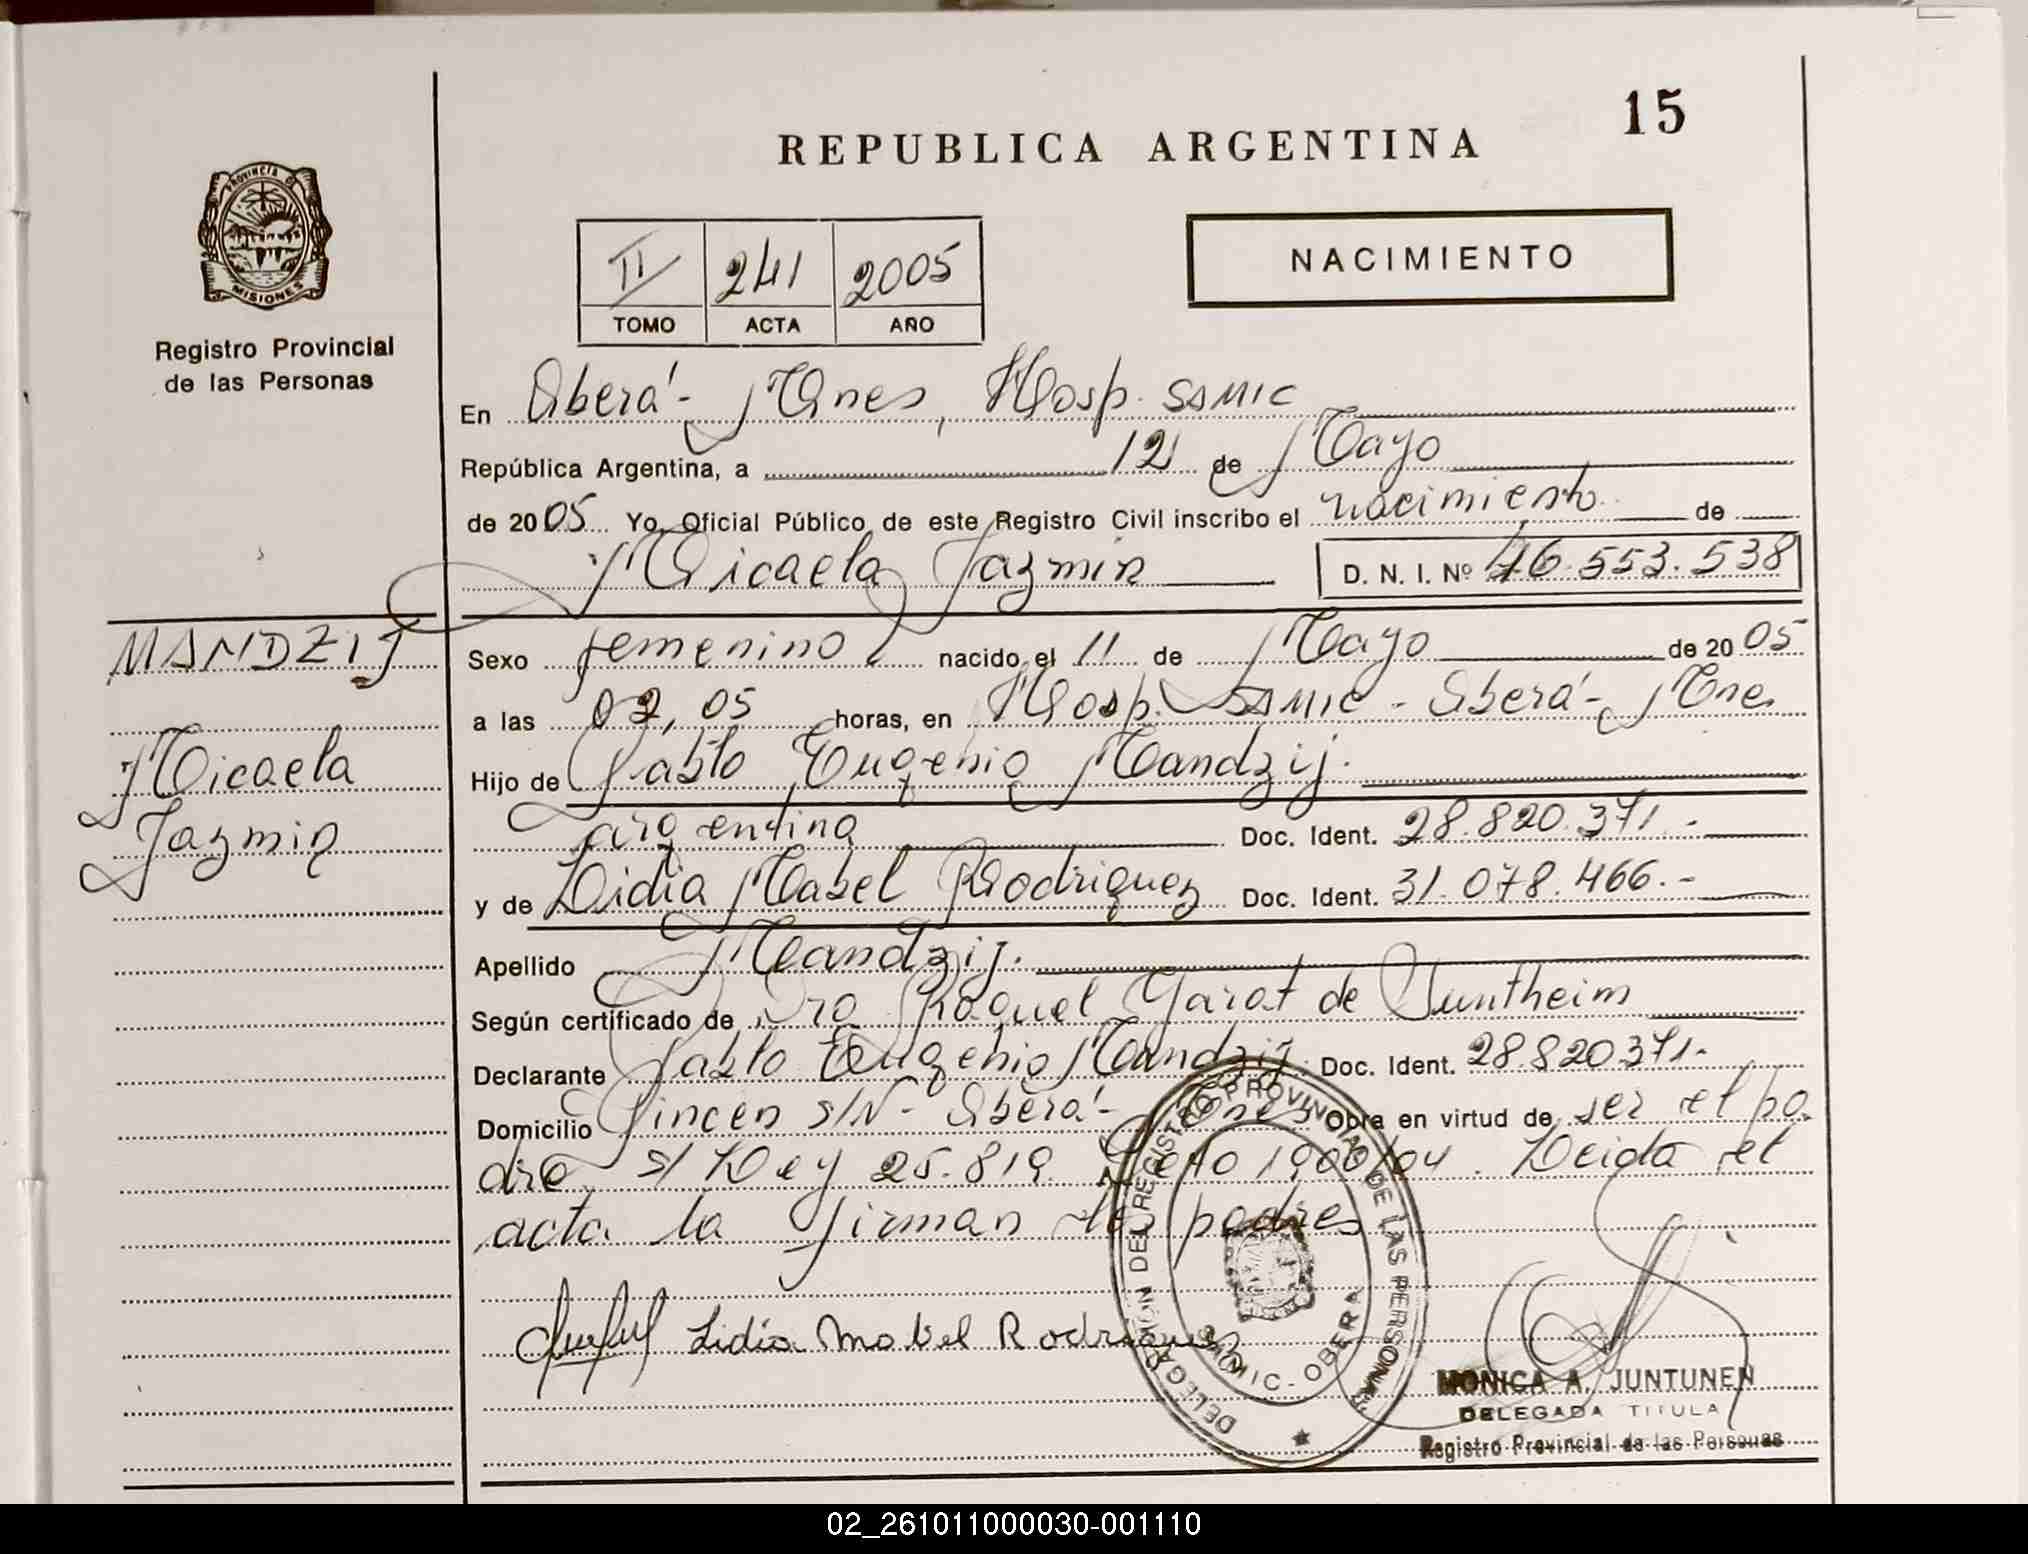 15
REPUBLICA ARGENTINA
PROVINCIA DE
MISIONES
Registro Provincial
de las Personas
NACIMIENTO
II 241 2005
TOMO ACTA AÑO
En Oberá - Mnes, Hosp. SAMIC
República Argentina, a 12 de Mayo
de 2005 Yo, Oficial Público de este Registro Civil inscribo el nacimiento de
Micaela Jazmin D. N. I. Nº 46.553.538
MANDZIJ
Micaela
Jazmin
Sexo femenino nacido el 11 de Mayo de 2005
a las 02,05 horas, en Hosp. SAMIC - Oberá - Mnes
Hijo de Pablo Eugenio Mandzij.
argentina Doc. Ident. 28.820.371.-
y de Lidia Mabel Rodriguez Doc. Ident. 31.078.466.-
Apellido Mandzij.
Según certificado de Dra Raquel Garat de Suntheim
Declarante Pablo Eugenio Mandzij Doc. Ident. 28.820371-
Domicilio Pincen s/N - Oberá - Mnes Obra en virtud de ser el pa
dre s/ Ley 25.819. Dcto 1906/04. Leida el
acta la firman los padres
Lidia Mabel Rodriguez
DELEGACION DEL REGISTRO PROVINCIAL DE LAS PERSONAS
SAMIC - OBERA
MONICA A. JUNTUNEN
DELEGADA TITULA
Registro Provincial de las Personas
02_261011000030-001110